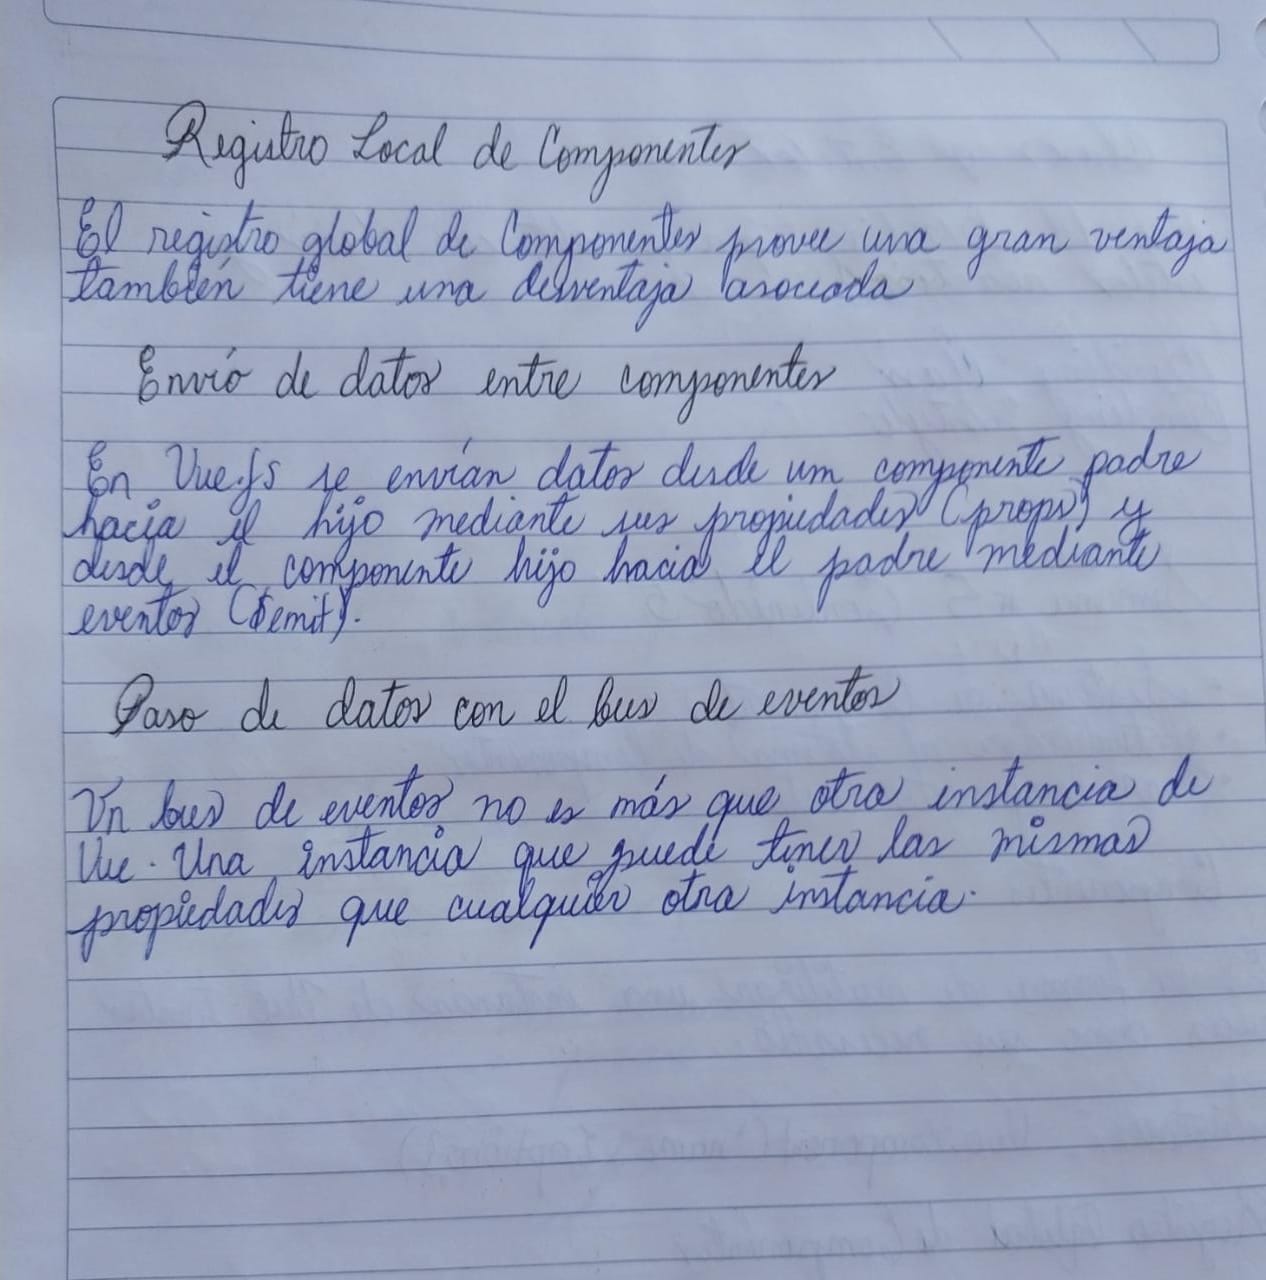 Registro Local de Componentes
El registro global de Componentes provee una gran ventaja
también tiene una desventaja asociada
Envío de datos entre componentes
En VueJs se envían datos desde un componente padre
hacia el hijo mediante sus propiedades (props) y
desde el componente hijo hacia el padre mediante
eventos ($emit).
Paso de datos con el bus de eventos
Un bus de eventos no es más que otra instancia de
Vue. Una instancia que puede tener las mismas
propiedades que cualquier otra instancia.